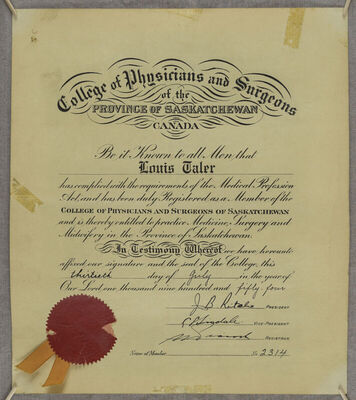 College of Physicians and Surgeons
of the
PROVINCE OF SASKATCHEWAN
CANADA
Be it Known to all Men that
Louis Taler
has complied with the requirements of the Medical Profession
Act, and has been duly Registered as a Member of the
COLLEGE OF PHYSICIANS AND SURGEONS OF SASKATCHEWAN
and is thereby entitled to practise Medicine, Surgery and
Midwifery in the Province of Saskatchewan.
In Testimony Whereof we have hereunto
affixed our signature and the seal of the College, this
thirtieth day of July in the year of
Our Lord one thousand nine hundred and fifty four
J B PRESIDENT
VICE-PRESIDENT
REGISTRAR
Name of Member No 2314